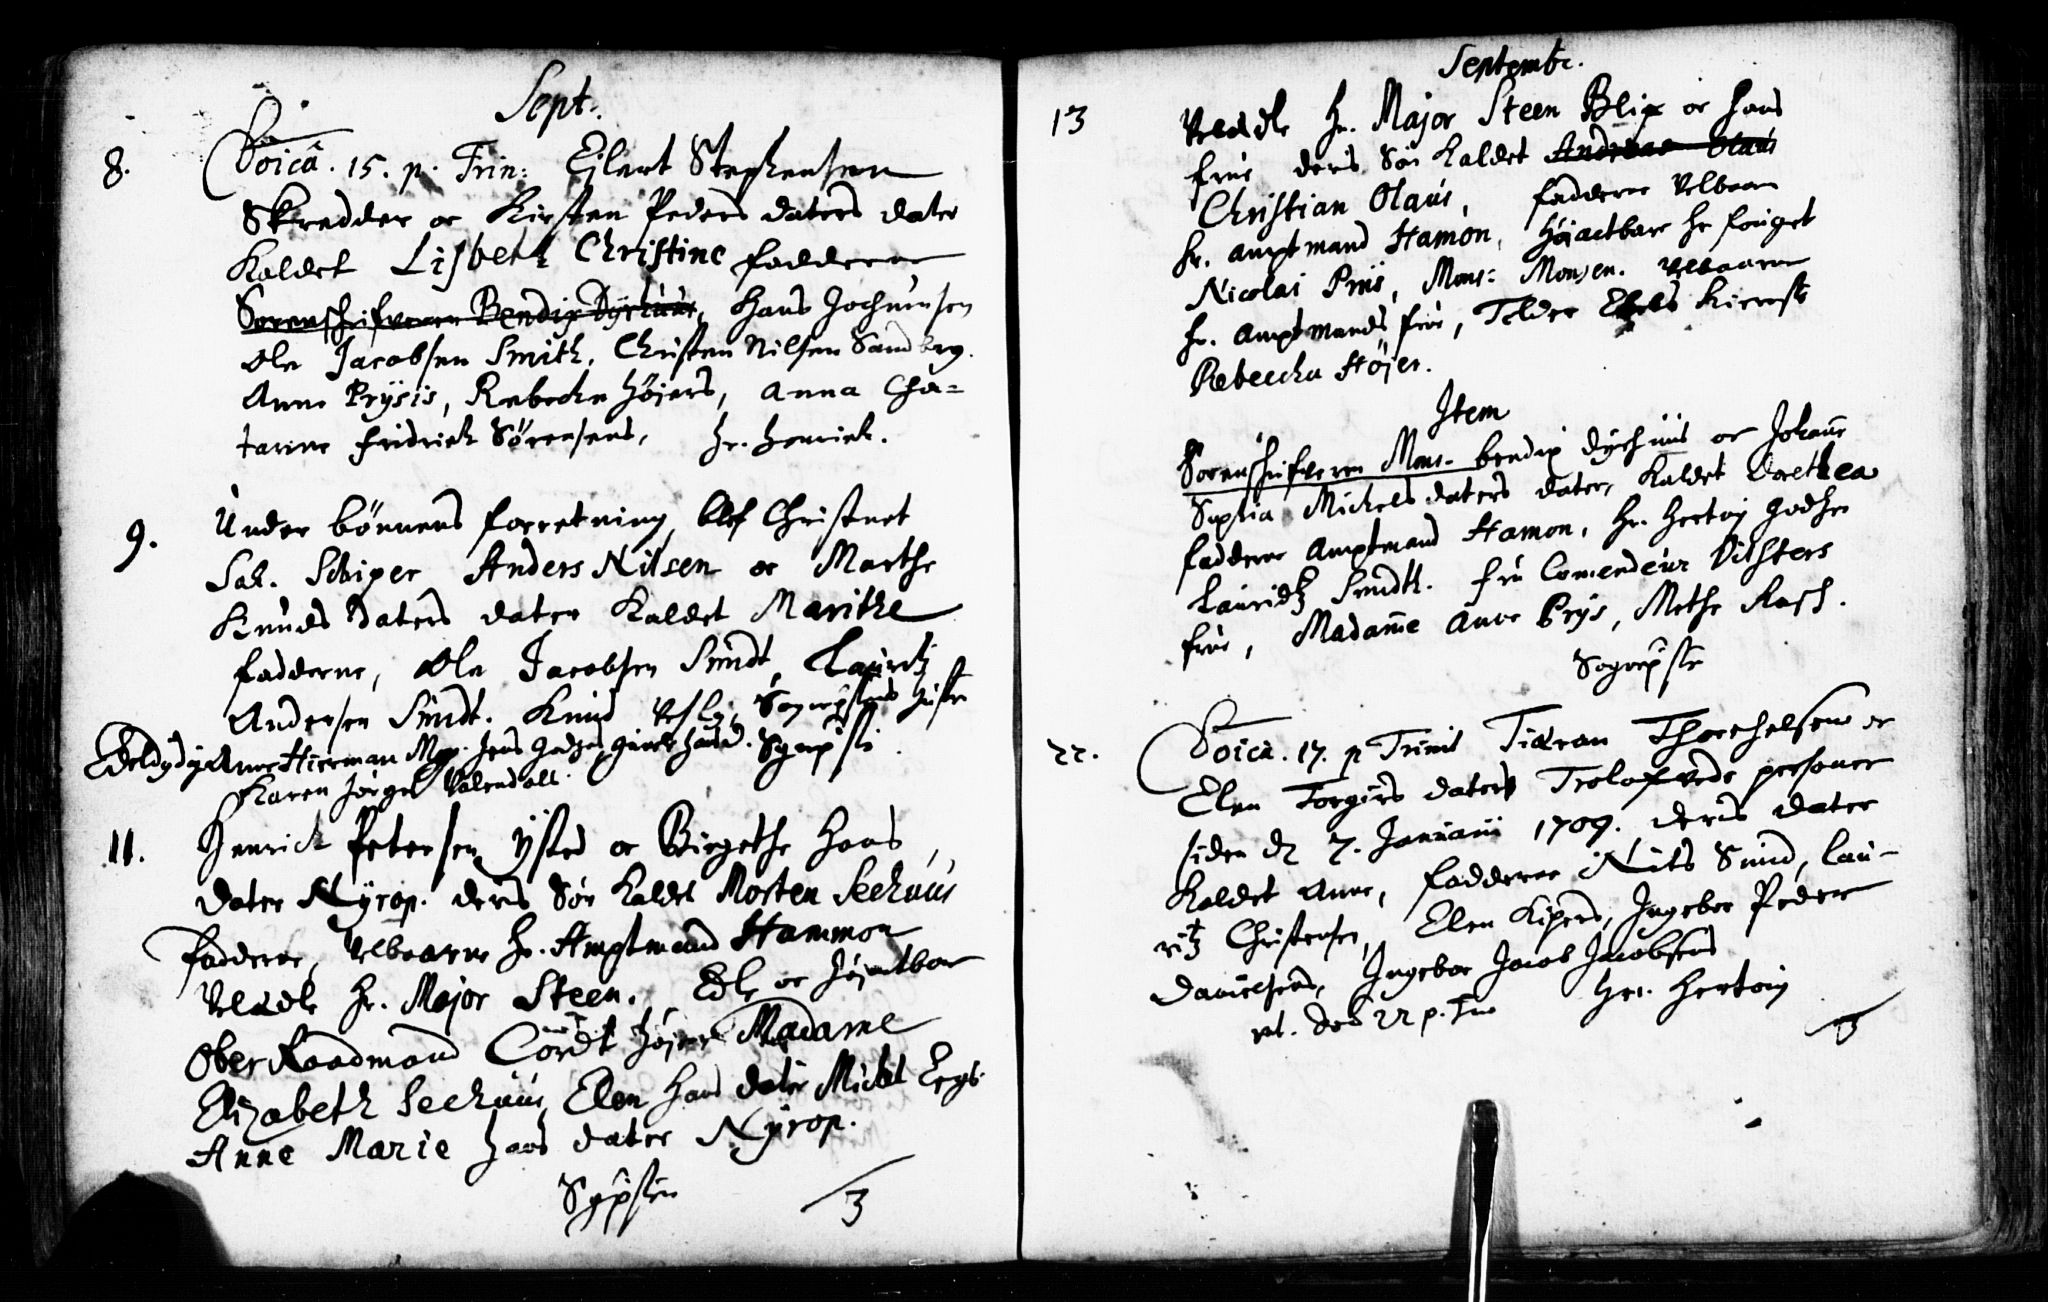 Sept:
8. Doica. 15. p. Trin: Ejlert Stephensen
Skredder oc Kirsten Peders daters dater
kaldet Lisbeth Christine fadderne
Sorenschrifveren Bendix Dyrhuus, Hans Jochumsen
Ole Jacobsen Smith, Christen Nilsen Sandberg.
Anne Prysis, Rebecka Højers, Anna Cha-
tarine fridrich Sørensens, Hr. Henrich.
9. Under bønnens forretning blef Christnet
Sal. Schiper Anders Nilsen oc Marthe
Knuds daters dater kaldet Marithe
fadderne, Ole Jacobsen Smidt, Lauritz
Andersen Smidt. Knud
Anne Hierman
Karen Jørgel Valendals.
11. Henrich Petersen Ysted oc Birgethe Hans
dater Nyrop. deris Søn kaldet Morten Seehuus
fadderne, Velbaarne Hr. Amptmand Hammon
Veledle Hr. Major Steen. Edle oc Højactbar
Ober Raadmand Cordt Højer Madame
Elizabeth Seehuus Elen Hans dater Michel
Anne Marie Hans dater Nyrop.
3
Septembr.
13 Veledle Hr. Major Steen Blix oc hans
frue deris Søn kaldet Andreas Olaus
Christian Olaus, fadderne Velbaarn
Hr. Amptmand Hamon, Højactbare Hr fouget
Nicolai Priis, Mons: Monsen. Velbaarne
Hr. Amptmands frue, Tolder
Rebeecha Højer.
Item
Sorenschrifveren Mons. bendix dyrhuus oc Johanne
Sophia Michels daters dater, kaldet Dorethea
fadderne Amptmand Hamon, Hr. Hertvig
Lauridtz Smidth. fru Comendeur Vilhsters
frue, Madamme Anne Prys, Methe Rasch.
22. Doica. 17. p Trinit Tiæran Thorchelsen oc
Elen Torgirs daters Trolofvede personer
siden d 7. Januarii 1709. deris dater
kaldet Anne, fadderne Nils Sund, Lau-
ritz Christensen, Elen Kipers, Ingebor Peder
Danielsens, Ingebor Jacob Jacobsens
Hr. Hertvig
3